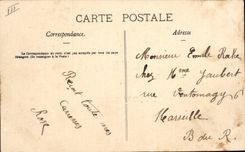 CARTE POSTALE
Correspondance.
Adresse
Le Correspondance au recto n'est pas acceptée par tous les pays
étrangers (Se renseigner à la Poste)
Reçoit toute mes
Caresses
Rose
Monsieur Emile
chez Mme Jaubert
rue 6
Marseille
B du R.